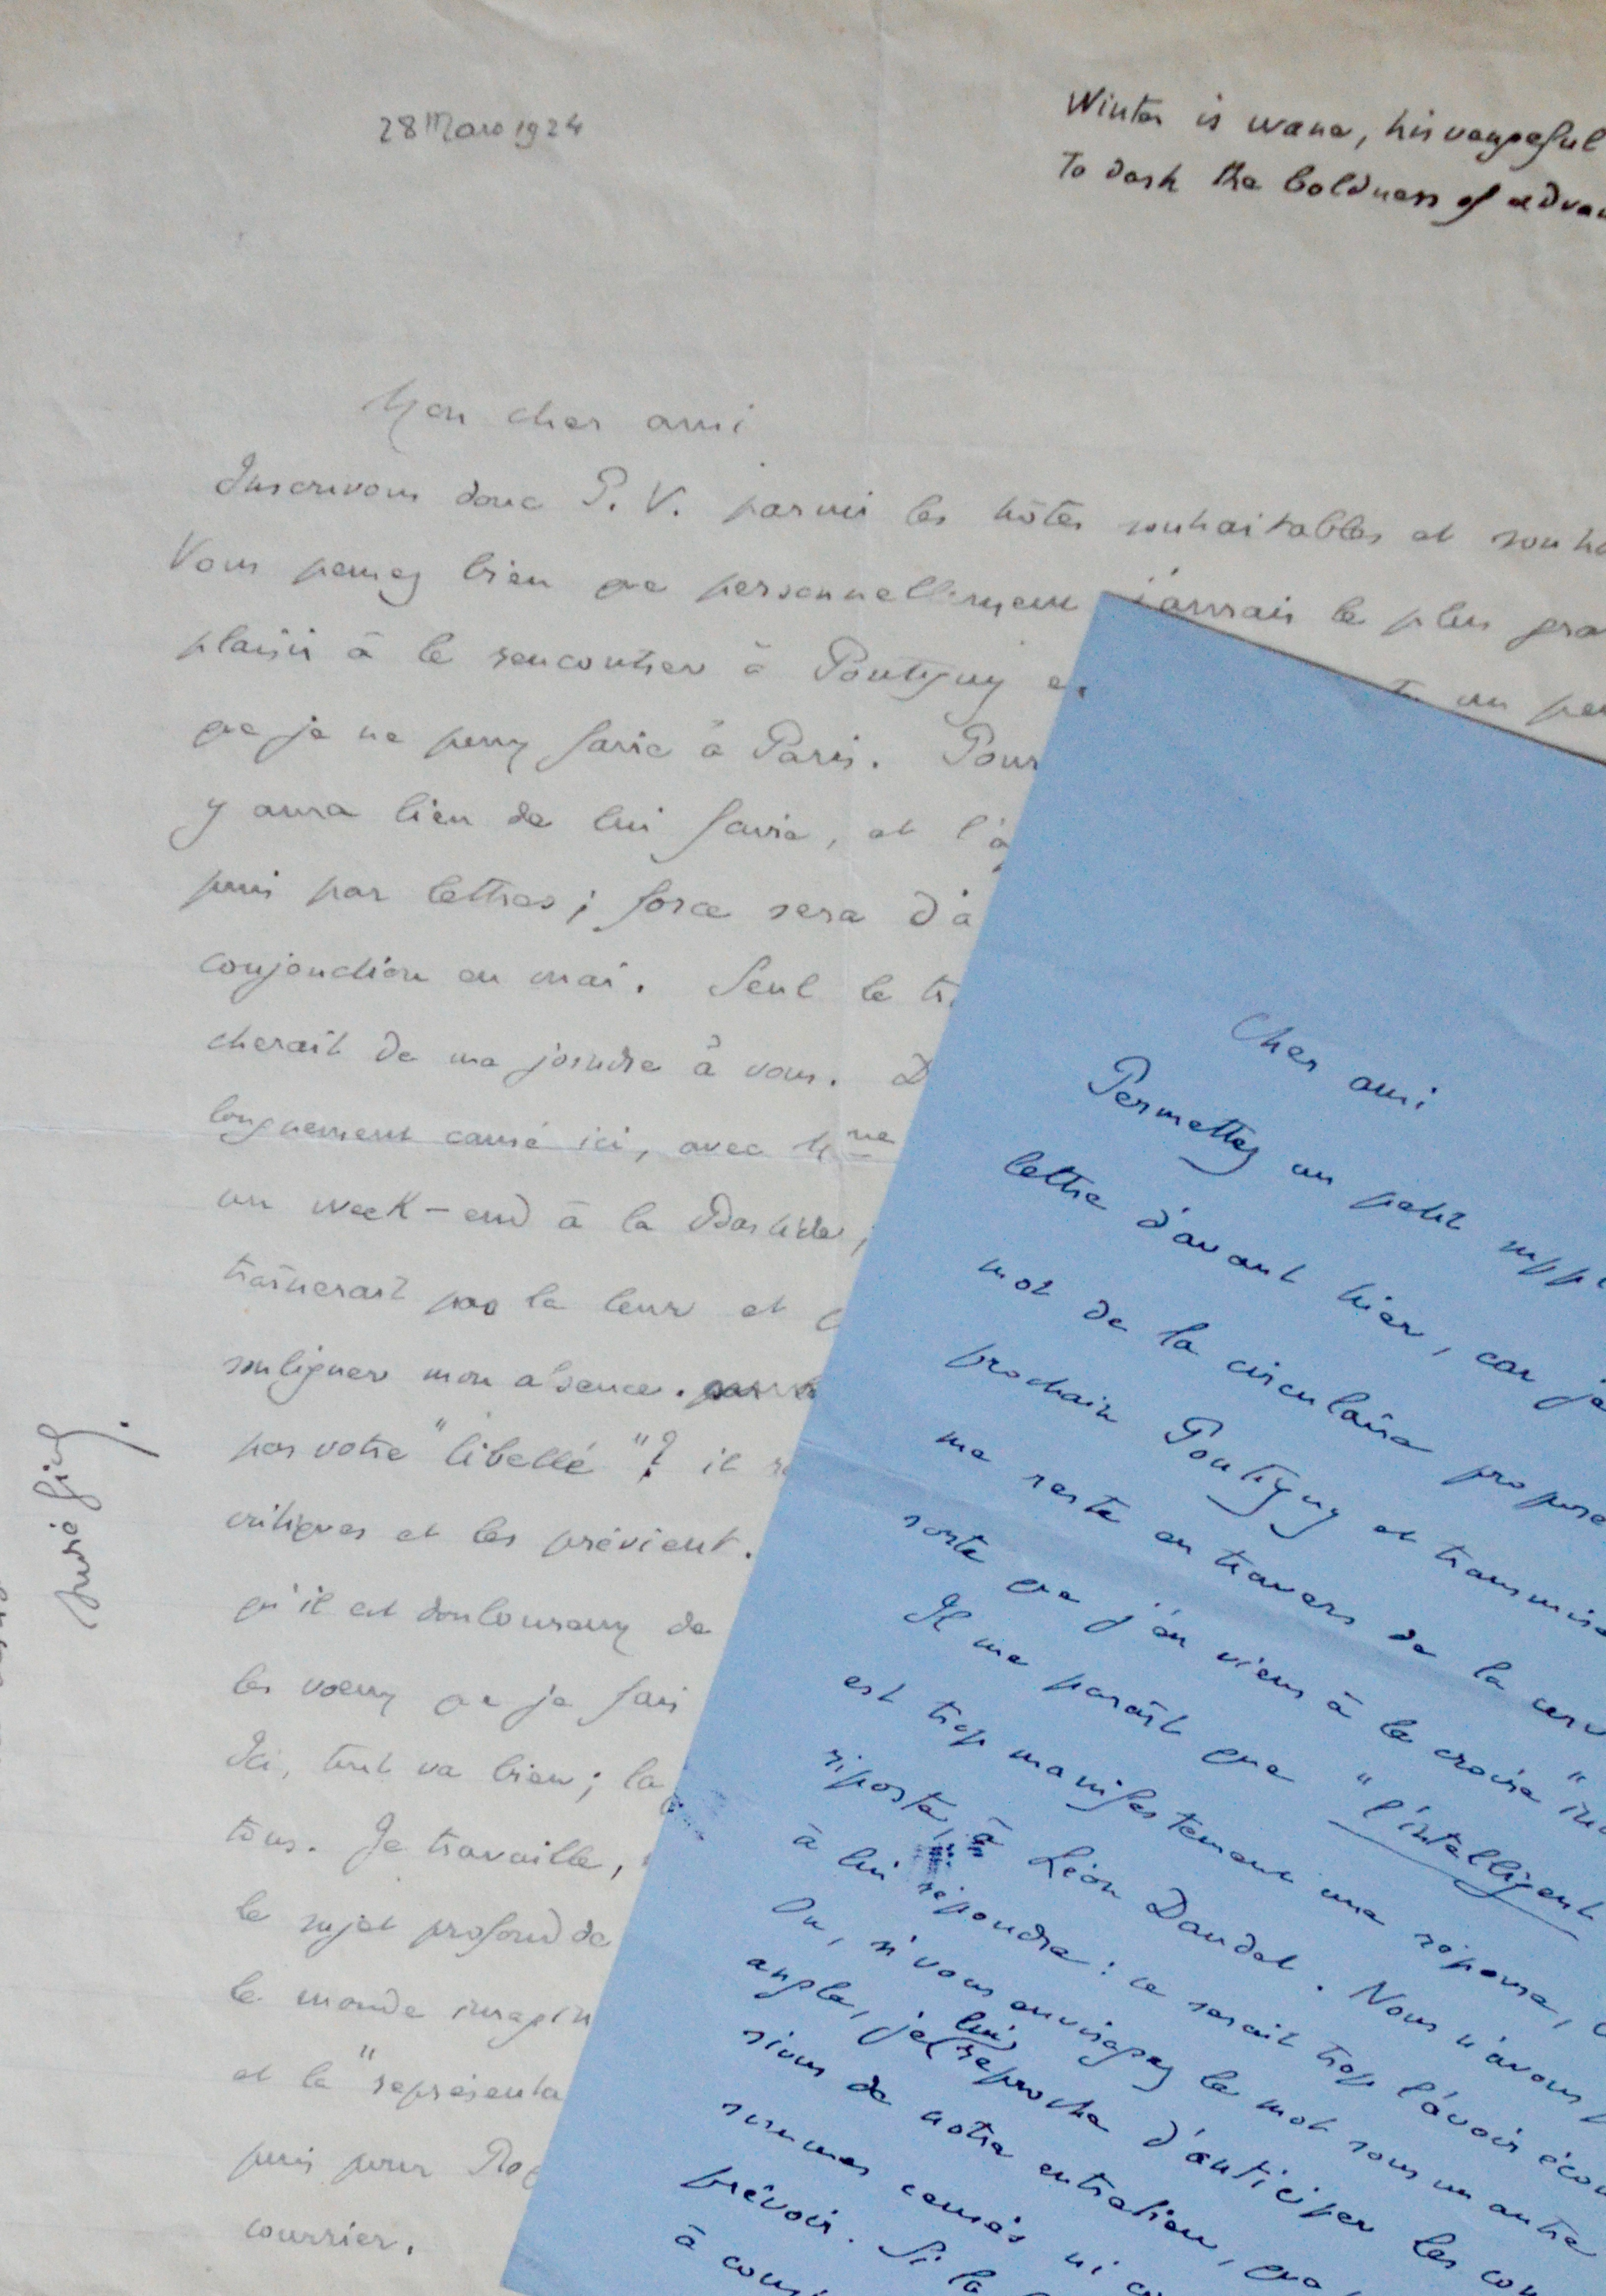 28 Mars 1924
Winter is wane, his vengeful
To dash the boldness of advan
Mon cher ami
Inscrivons donc P. V. parmi les hôtes souhaitables et souha
Vous pensez bien que personnellement j'aurais le plus gra
plaisir à le rencontrer à Pontigny e
un peu
que je ne puis faire à Paris. Pour
y aura lieu de lui faire, et l'a
puis par lettres ; force sera d'a
conjonction en mai. Seul le tr
cherait de me joindre à vous. D
longuement causé ici, avec Mme
un week-end à la Bastide,
traînerait pas la leur et
souligner mon absence.
pas votre "libellé"? il
critiques et les prévient.
qu'il est douloureux de
les vœux que je fais
Ici, tout va bien ; la
tous. Je travaille,
le sujet profond de
le monde imagin
et la "représenta
puis pour Rog
courrier.
André Gide.
Cher ami
Permettez un petit supplé
lettre d'avant hier, car je
mot de la circulaire propose
prochain Pontigny et transmise
me reste en travers de la cerv
sorte que j'en viens à le croire "in
Il me paraît que "l'intelligent
est trop manifestement une réponse,
riposte, à Léon Daudet. Nous n'avons p
à lui répondre : ce serait trop l'avoir écou
Ou, si vous envisagez le mot sous un autre
angle, je lui reproche d'anticiper les con
sions de notre entretien, que
sommes censés ni co
prévoir. Si la
à consi